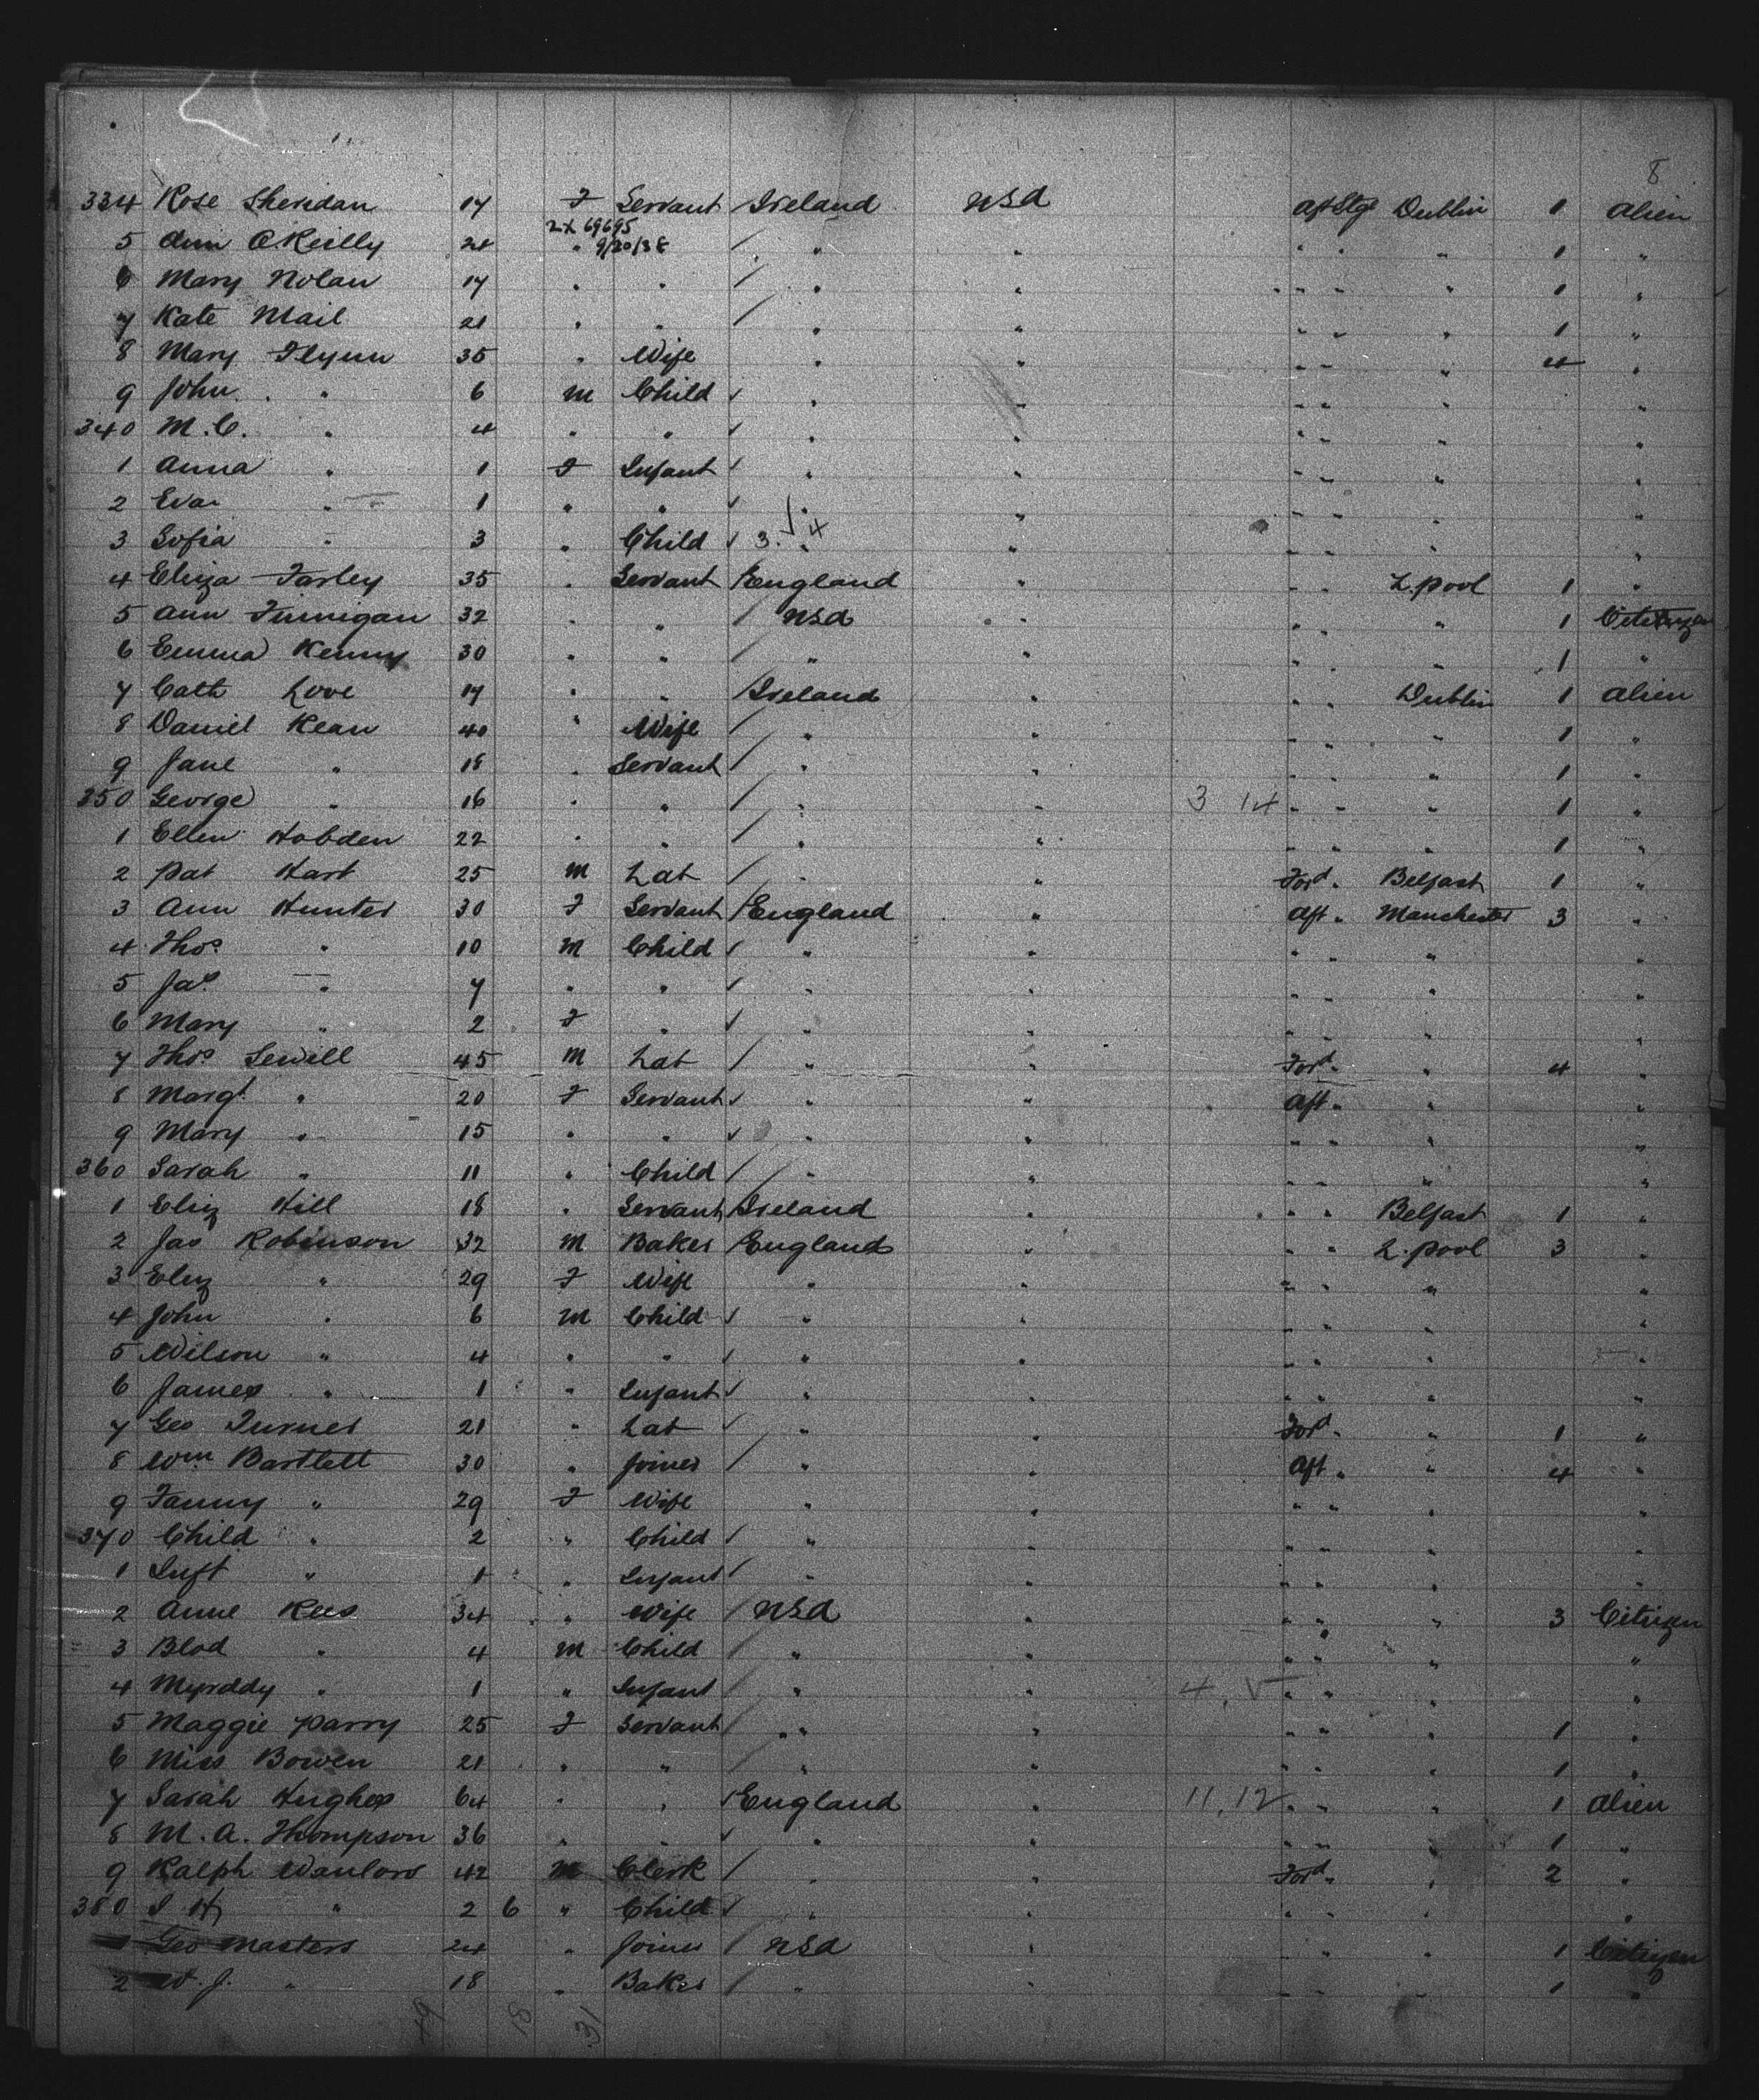 8
334 Rose Sheridan 17 F Servant Ireland USA Aft Stge Dublin 1 Alien
2X 69695
5 Ann O'Reilly 24 " 9/20/38 " " " " " 1 "
6 Mary Nolan 17 " " " " " " " 1 "
7 Kate Mail 21 " " " " " " " 1 "
8 Mary Flynn 35 " Wife " " " " " 4 "
9 John " 6 M Child " " " " " "
340 M.C. " 4 " " " " " " " "
1 Anna " 1 F Infant " " " " " "
2 Eva " 1 " " " " " " " "
3 Sofia " 3 " Child 3. 4 " " " " " "
4 Eliza Farley 35 " Servant England " " " L.pool 1 "
5 Ann Finnigan 32 " " USA " " " " 1 Citizen
6 Emma Kenny 30 " " " " " " " 1 "
7 Cath Love 17 " " Ireland " " " Dublin 1 Alien
8 Daniel Kean 40 " Wife " " " " " 1 "
9 Jane " 18 " Servant " " " " " 1 "
350 George " 16 " " " " 3 14 " " " 1 "
1 Ellen Hobden 22 " " " " " " " 1 "
2 Pat Hart 25 M Lab " " Ford " Belfast 1 "
3 Ann Hunter 30 F Servant England " Aft " Manchester 3 "
4 Thos " 10 M Child " " " " " "
5 Jas " 7 " " " " " " " "
6 Mary " 2 F " " " " " " "
7 Thos Sewell 45 M Lab " " Ford " " 4 "
8 Margt " 20 F Servant " " Aft " " "
9 Mary " 15 " " " " " " " "
360 Sarah " 11 " Child " " " " " "
1 Eliz Hill 18 " Servant Ireland " " " Belfast 1 "
2 Jas Robinson 32 M Baker England " " " L.pool 3 "
3 Eliz " 29 F Wife " " " " " "
4 John " 6 M Child " " " " " "
5 Wilson " 4 " " " " " " " "
6 James " 1 " Infant " " " " " "
7 Geo Turner 21 " Lab " " Ford " " 1 "
8 Wm Bartlett 30 " Joiner " " Aft " " 4 "
9 Fanny " 29 F Wife " " " " " "
370 Child " 2 " Child " " " " " "
1 Inft " 1 " Infant " " " " " "
2 Anne Rees 34 " Wife USA " " " " 3 Citizen
3 Blod " 4 M Child " " " " " "
4 Myrddy " 1 " Infant " " 4. " " " "
5 Maggie Parry 25 F Servant " " " " " 1 "
6 Miss Bowen 21 " " " " " " " 1 "
7 Sarah Hughes 64 " " England " 11,12 " " " 1 Alien
8 M.A. Thompson 36 " " " " " " " 1 "
9 Ralph 42 M Clerk " " Ford " " 2 "
380 " 2 6 " Child " " " " " "
Geo Masters 24 " Joiner USA " " " " 1 Citizen
2 W.J. " 18 " Baker " " " " " 1 "
18 31